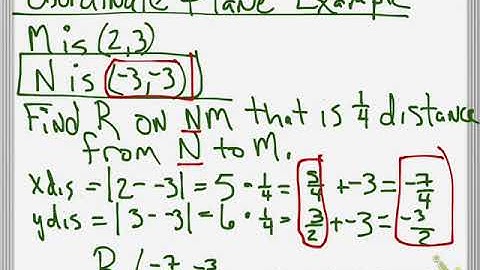 Coordinate Plane Example
M is (2,3)
N is (-3,-3)
Find R on NM that is 1/4 distance
from N to M.
xdis = |2--3| = 5 · 1/4 = 5/4 + -3 = -7/4
ydis = |3--3| = 6 · 1/4 = 3/2 + -3 = -3/2
R (-7 -3